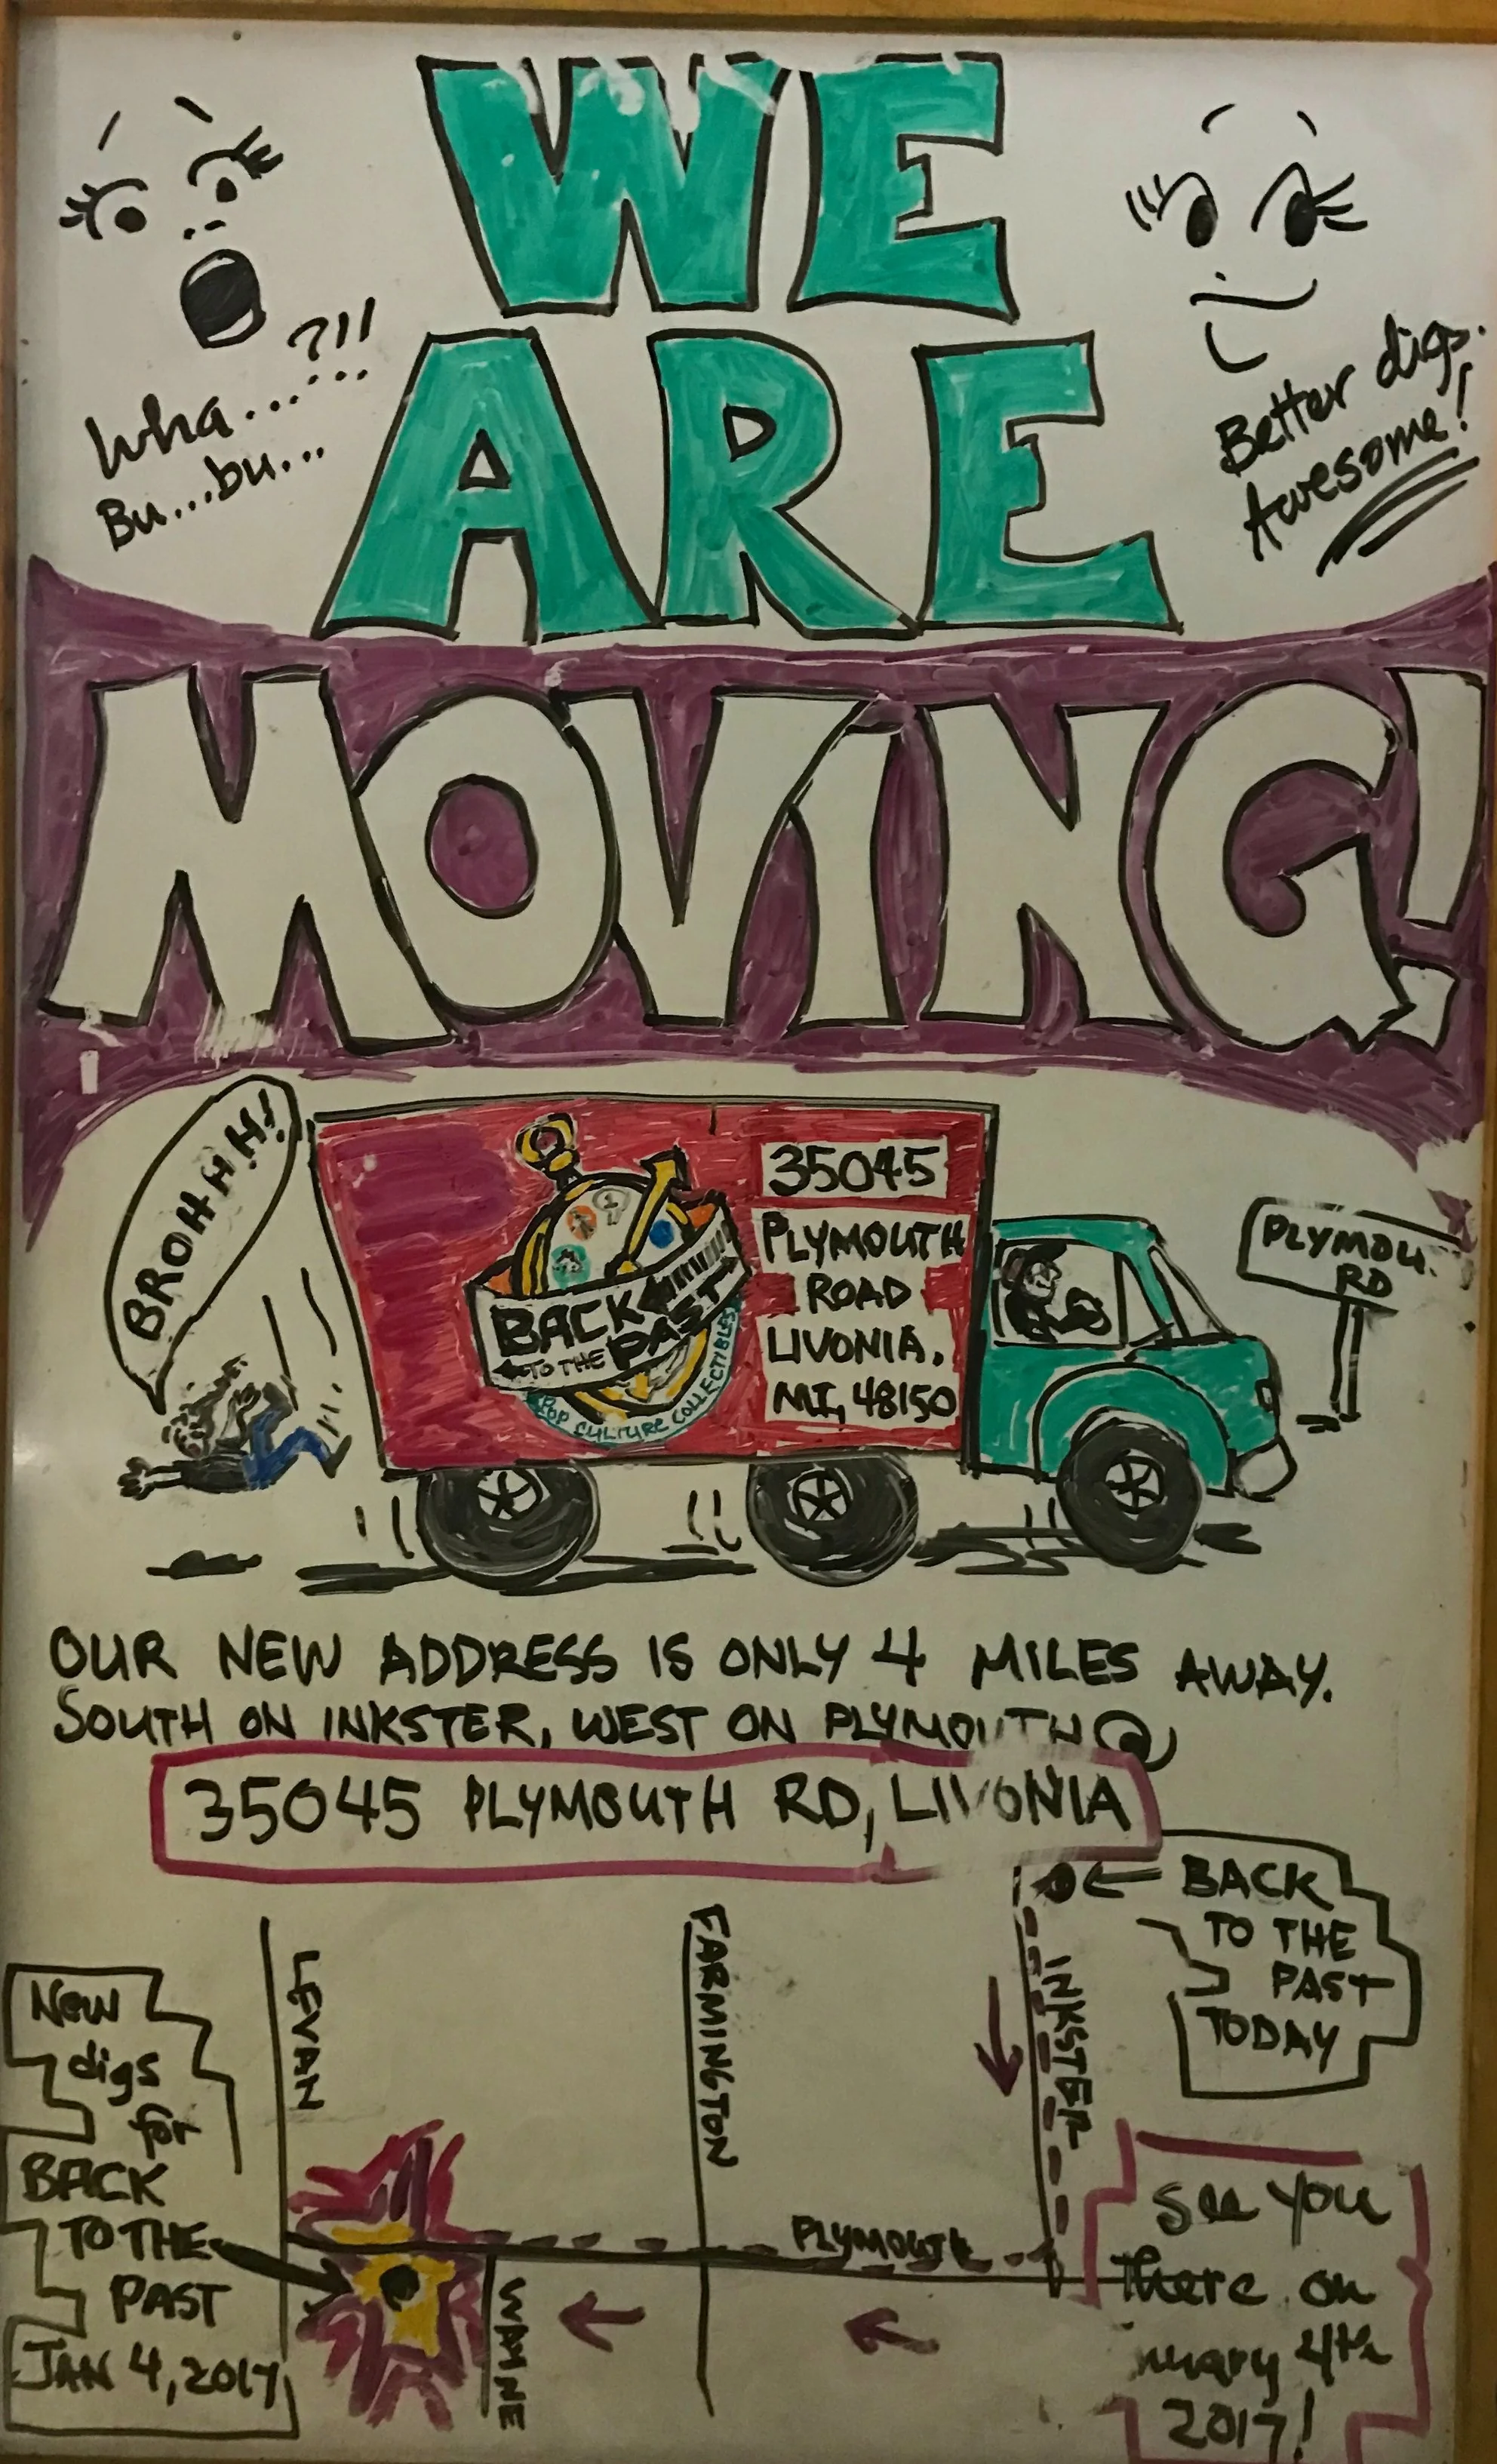 WE
ARE
MOVING!
Wha...?!!
Bu...bu...
Better digs.
Awesome!
BROHHH!
BACK
TO THE PAST
POP CULTURE COLLECTIBLES
35045
PLYMOUTH
ROAD
LIVONIA,
MI, 48150
PLYMOU
RD
OUR NEW ADDRESS IS ONLY 4 MILES AWAY.
SOUTH ON INKSTER, WEST ON PLYMOUTH @
35045 PLYMOUTH RD, LIVONIA
BACK
TO THE
PAST
TODAY
LEVAN
FARMINGTON
INKSTER
New
digs
for
BACK
TO THE
PAST
JAN 4, 2017
PLYMOUTH
WAYNE
See you
there on
nuary 4th
2017!